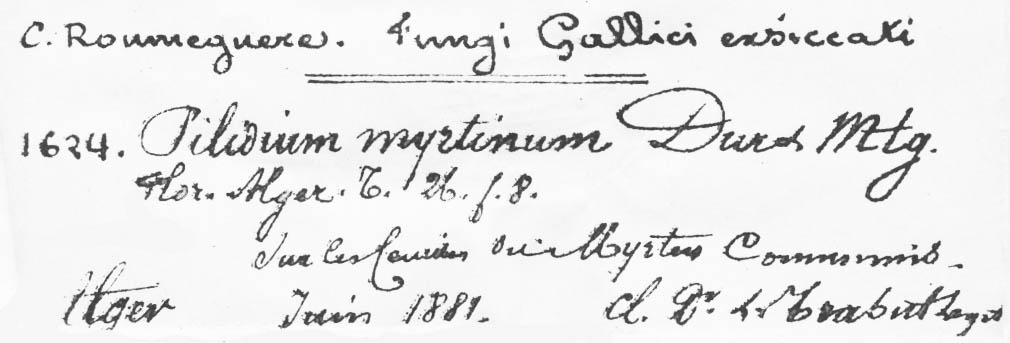 C. Roumeguere. Fungi Gallici exsiccati
1624. Pilidium myrtinum Dur & Mtg.
Flor. Alger. T. 26. f. 8.
Sur les feuilles du Myrtus Communis.
Alger Juin 1881. cl. Dr. L. Trabut legit